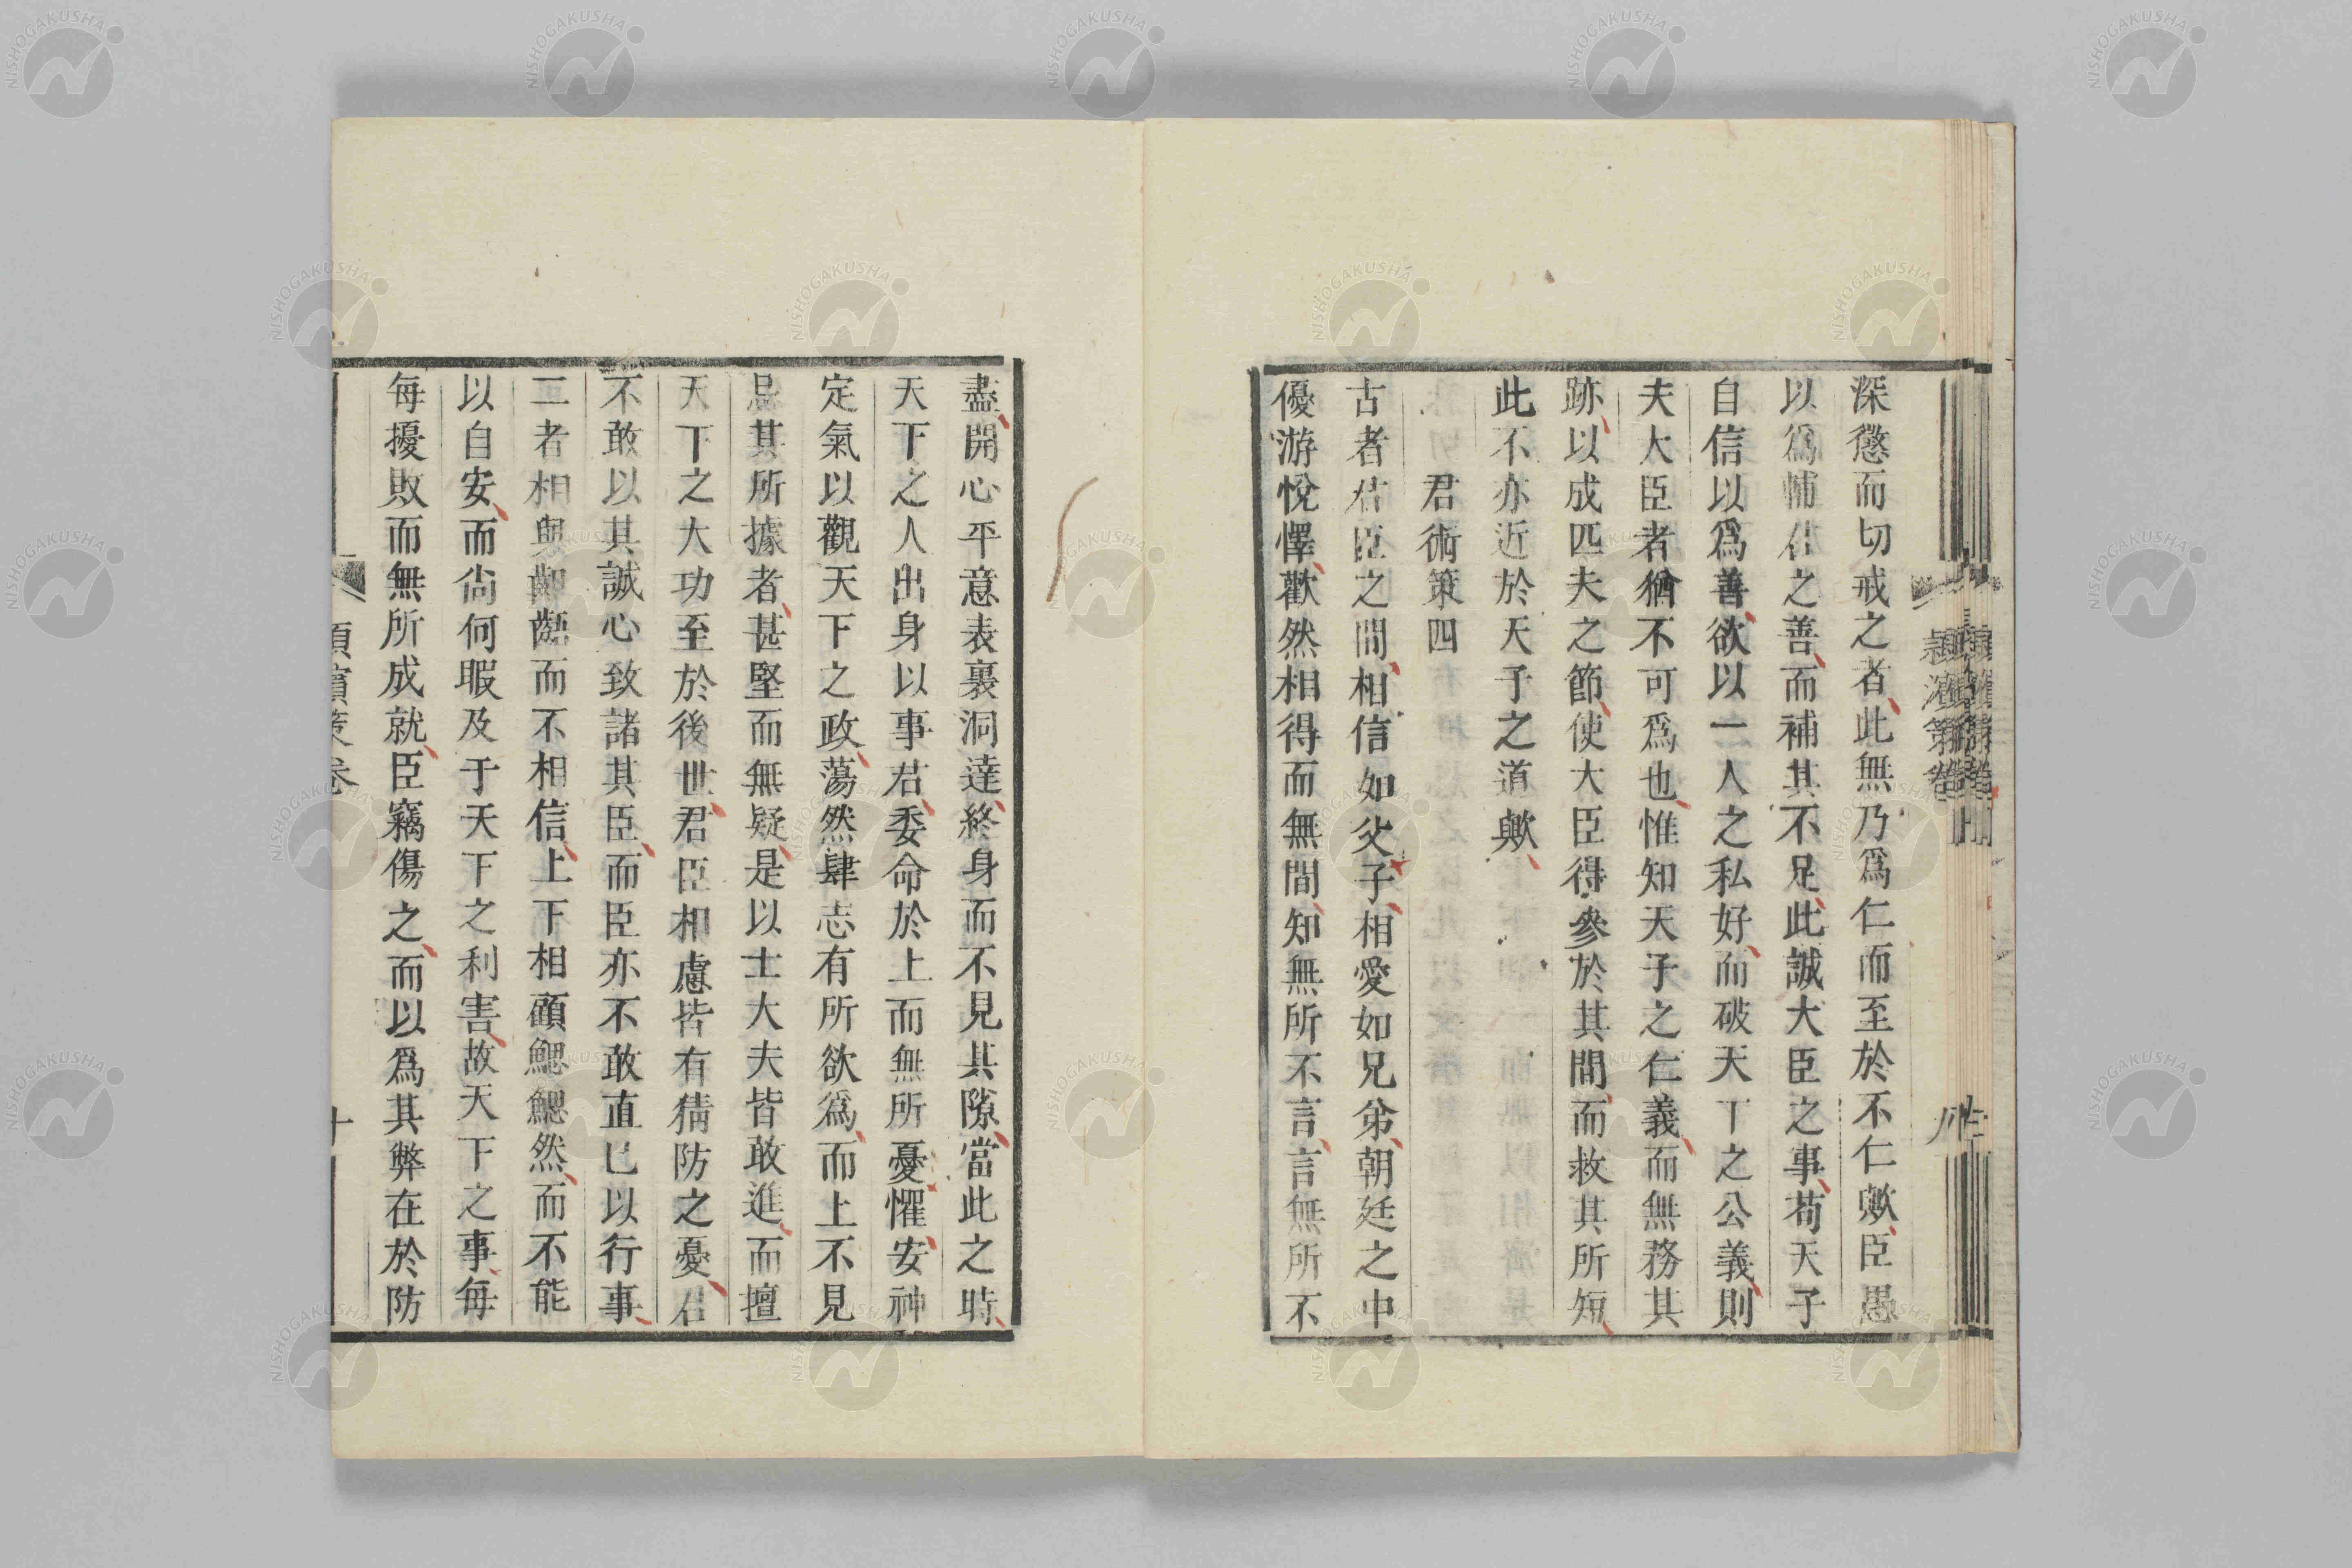 深懲而切戒之者此無乃爲仁而至於不仁歟臣愚
以爲輔君之善而補其不足此誠大臣之事苟天子
自信以爲善欲以一人之私好而破天下之公義則
夫大臣者猶不可爲也惟知天子之仁義而無務其
跡以成匹夫之節使大臣得參於其間而救其所短
此不亦近於天子之道歟
君術策四
古者君臣之間相信如父子相愛如兄弟朝廷之中
優游悅懌歡然相得而無間知無所不言言無所不
盡開心平意表裏洞達終身而不見其隙當此之時
天下之人出身以事君委命於上而無所憂懼安神
定氣以觀天下之政蕩然肆志有所欲爲而上不見
忌其所據者甚堅而無疑是以士大夫皆敢進而擅
天下之大功至於後世君臣相慮皆有猜防之憂君
不敢以其誠心致諸其臣而臣亦不敢直已以行事
二者相與齟齬而不相信上下相顧鰓鰓然而不能
以自安而尙何暇及于天下之利害故天下之事每
每擾敗而無所成就臣竊傷之而以爲其弊在於防
潁濱策卷
十
NISHOGAKUSHA